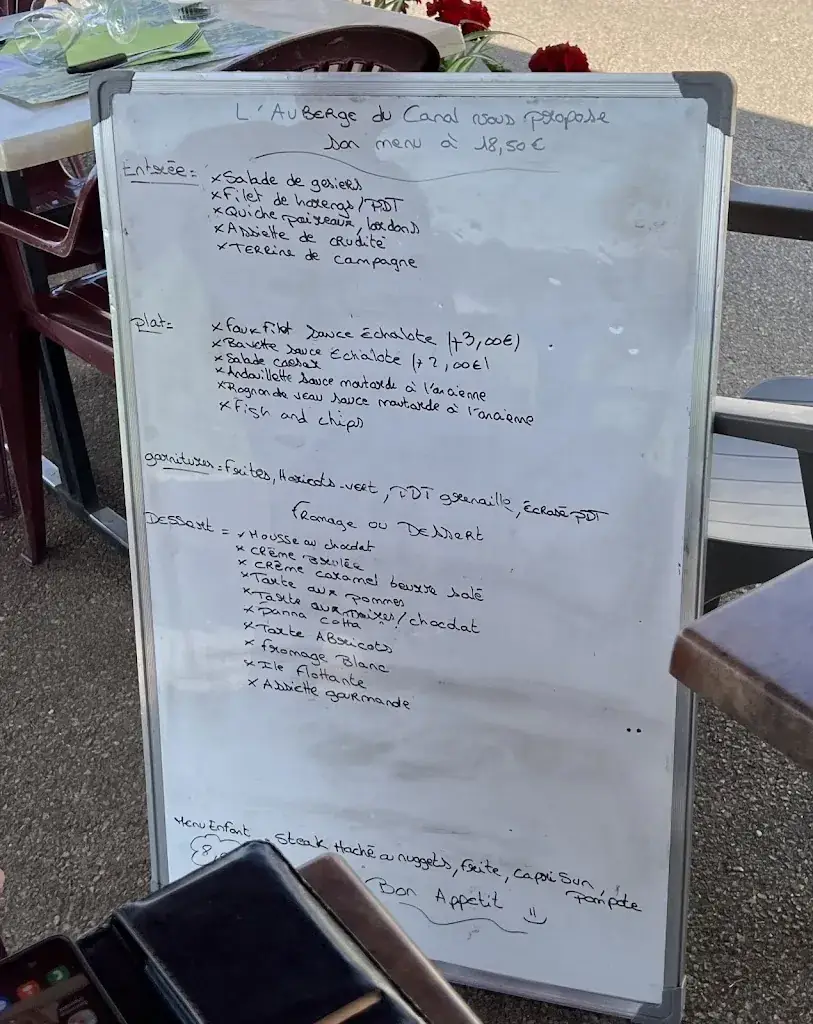 L'AUBERGE du Canal vous propose
son menu à 18,50€
Entrée =
x Salade de gesiers
x Filet de harengs / PDT
x Quiche poireaux, lardons
x Assiette de crudité
x Terrine de campagne
plat =
x faux filet sauce Échalote (+3,00€)
x Bavette sauce Échalote (+2,00€)
x Salade caesar
x Andouillette sauce moutarde à l'ancienne
x Rognon de veau sauce moutarde à l'ancienne
x Fish and chips
garnitures = Frites, Haricots-vert, PDT grenaille, Écrasé PDT
fromage ou Dessert
Dessert =
x Mousse au chocolat
x Crème Brulée
x Crème caramel beurre salé
x Tarte aux pommes
x Tarte aux noixs / chocolat
x Panna cotta
x Tarte Abricots
x fromage Blanc
x Ile flottante
x Assiette gourmande
Menu Enfant = Steak Haché ou nuggets, frite, capri Sun,
8, pompote
Bon Appetit =)